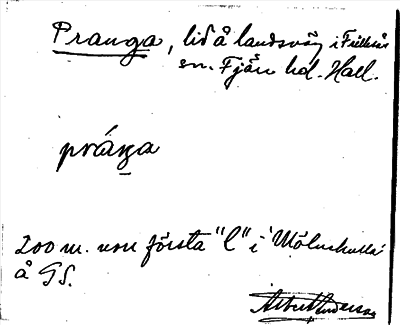 Pranga, lid å landsväg i Frillesås
sn. Fjäre hd. Hall.
práŋa
200 m. nov första "l" i "Mölnekulla"
å GS.
Albert Andersson